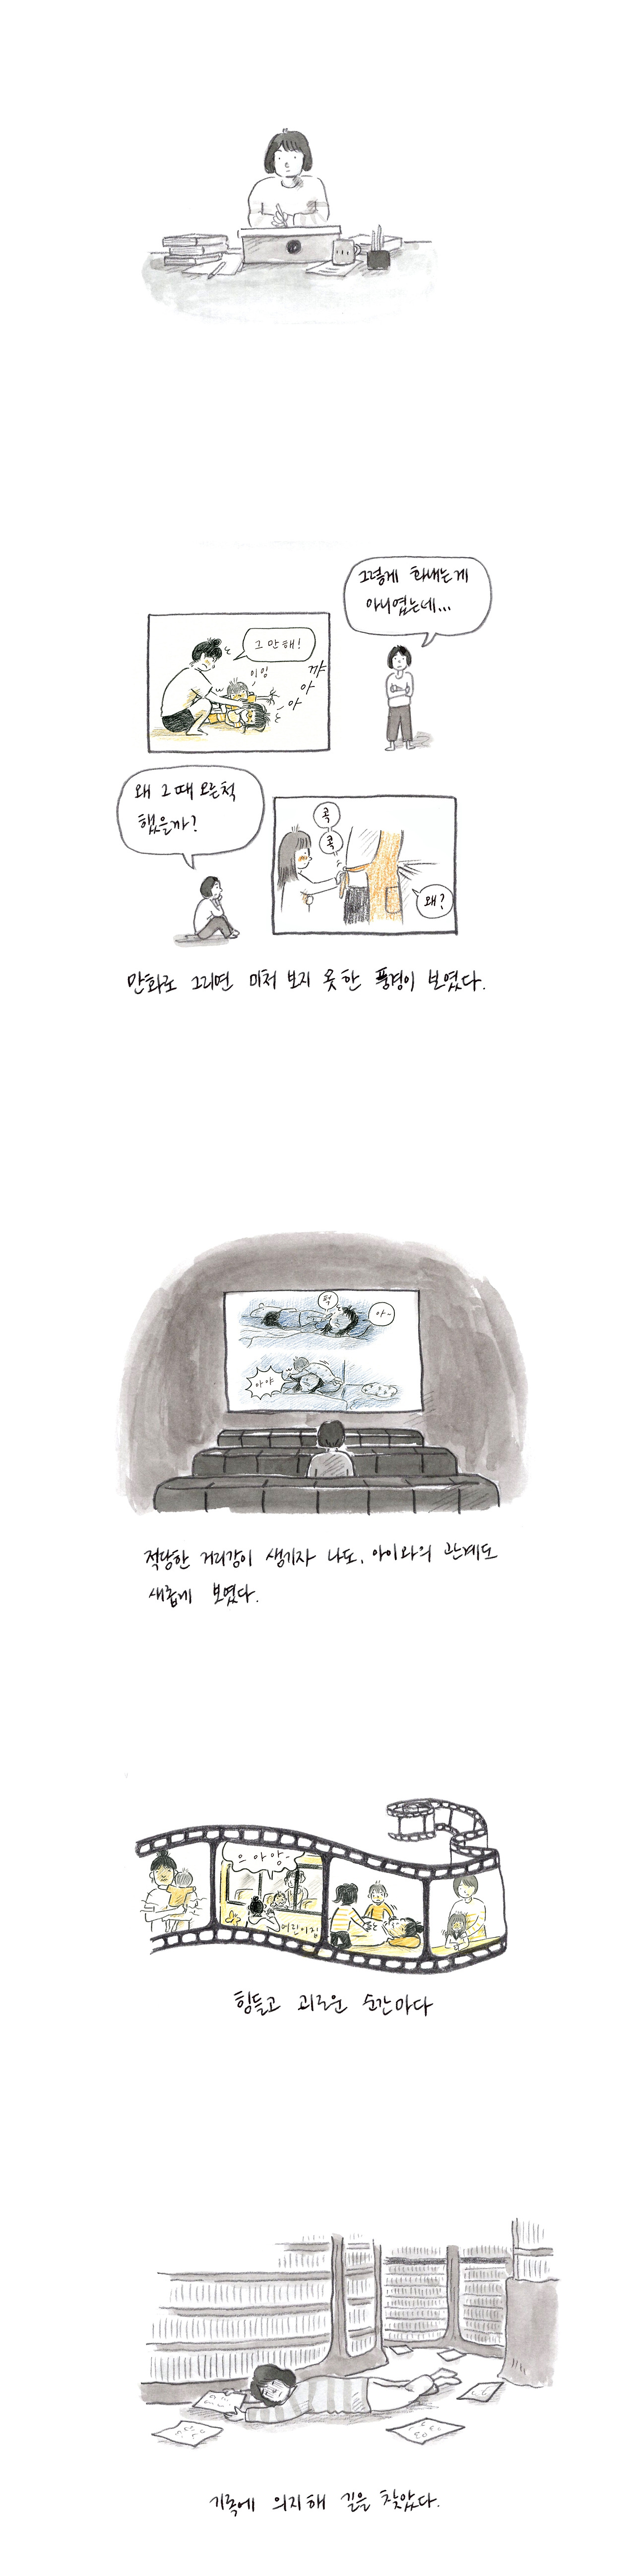 그렇게 화내는게
아니였는데...
그만해!
이잉
꺄
아
아
왜 그때 모른척
했을까?
콕
콕
왜?
만화로 그리면 미처 보지 못한 풍경이 보였다.
퍽
아-
아야
적당한 거리감이 생기자 나도, 아이와의 관계도
새롭게 보였다.
으아앙-
어린이집
힘들고 괴로운 순간마다
기록에 의지해 길을 찾았다.